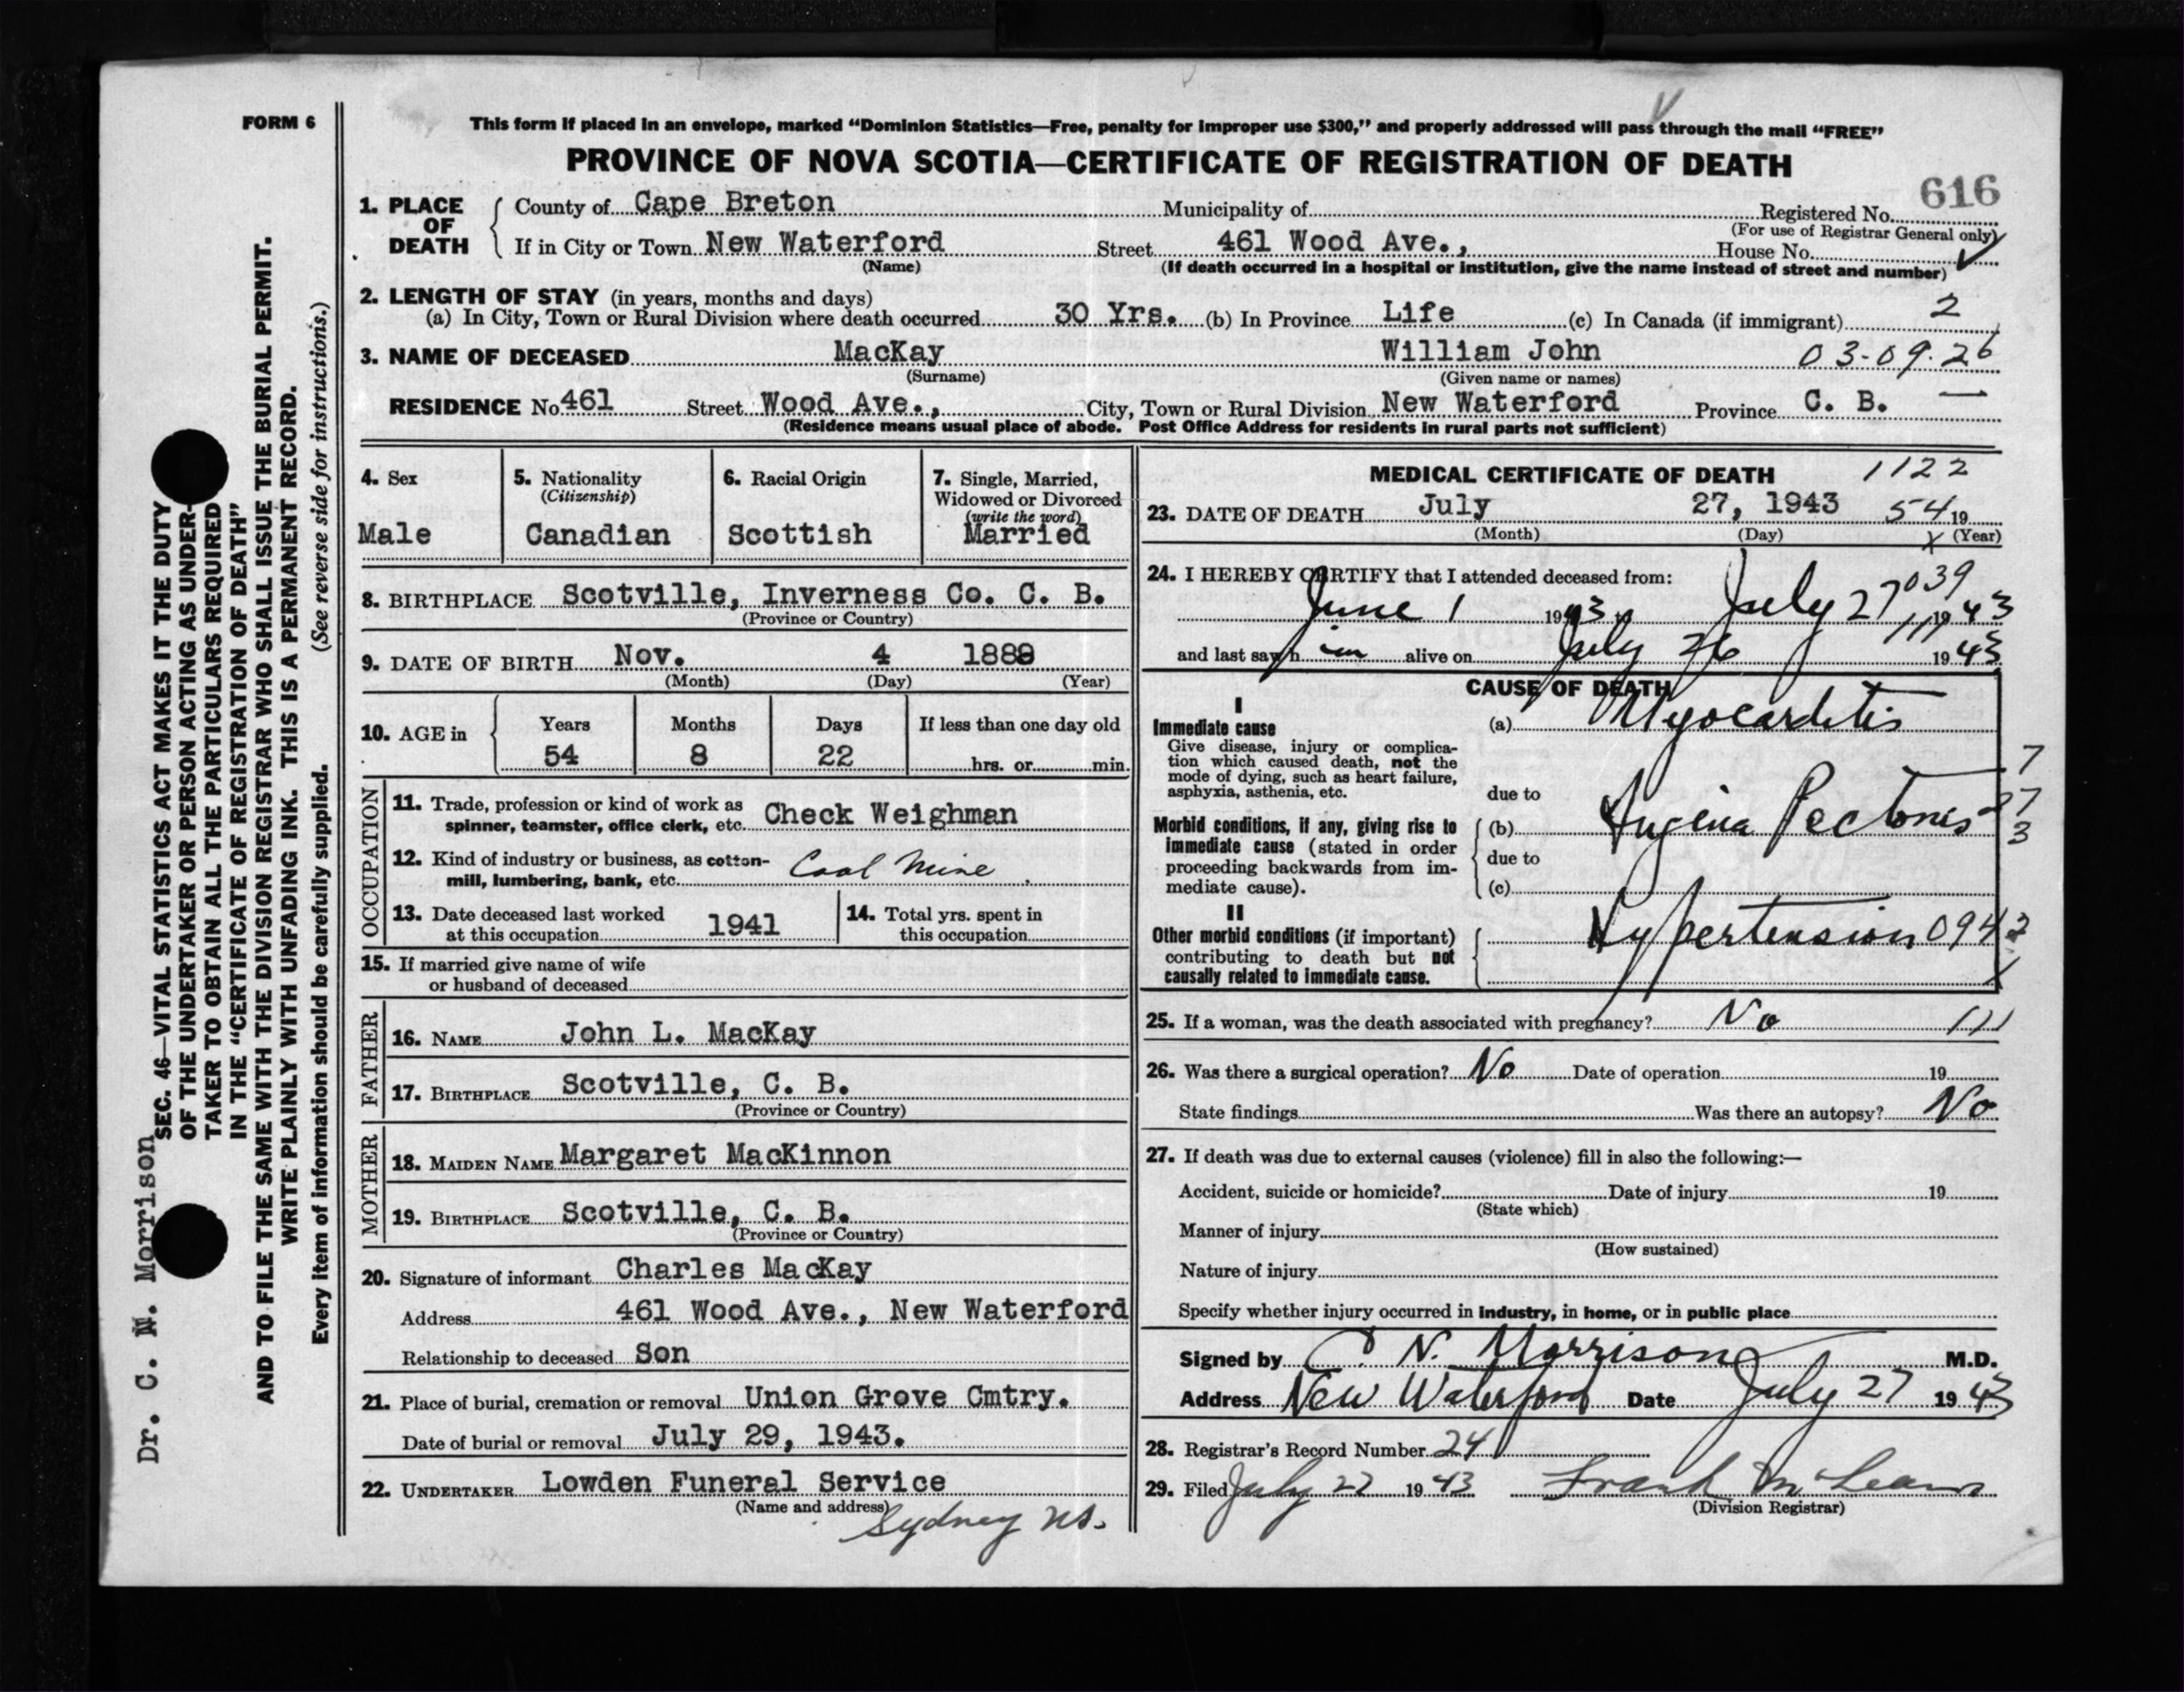 FORM 6
This form if placed in an envelope, marked “Dominion Statistics—Free, penalty for improper use $300,” and properly addressed will pass through the mail “FREE”
PROVINCE OF NOVA SCOTIA—CERTIFICATE OF REGISTRATION OF DEATH
616
1. PLACE OF DEATH County of Cape Breton Municipality of Registered No.
(For use of Registrar General only)
If in City or Town New Waterford Street 461 Wood Ave., House No.
(Name) (If death occurred in a hospital or institution, give the name instead of street and number)
2. LENGTH OF STAY (in years, months and days)
(a) In City, Town or Rural Division where death occurred 30 Yrs. (b) In Province Life (c) In Canada (if immigrant) 2
3. NAME OF DECEASED MacKay William John 03-09-26
(Surname) (Given name or names)
RESIDENCE No 461 Street Wood Ave., City, Town or Rural Division New Waterford Province C. B. —
(Residence means usual place of abode. Post Office Address for residents in rural parts not sufficient)
4. Sex
Male
5. Nationality
(Citizenship)
Canadian
6. Racial Origin
Scottish
7. Single, Married,
Widowed or Divorced
(write the word)
Married
8. BIRTHPLACE Scotville, Inverness Co. C. B.
(Province or Country)
9. DATE OF BIRTH Nov. 4 1888
(Month) (Day) (Year)
10. AGE in Years Months Days If less than one day old
54 8 22 hrs. or min.
OCCUPATION
11. Trade, profession or kind of work as
spinner, teamster, office clerk, etc. Check Weighman
12. Kind of industry or business, as cotton-
mill, lumbering, bank, etc. Coal Mine
13. Date deceased last worked
at this occupation 1941
14. Total yrs. spent in
this occupation
15. If married give name of wife
or husband of deceased
FATHER
16. NAME John L. MacKay
17. BIRTHPLACE Scotville, C. B.
(Province or Country)
MOTHER
18. MAIDEN NAME Margaret MacKinnon
19. BIRTHPLACE Scotville, C. B.
(Province or Country)
20. Signature of informant Charles MacKay
Address 461 Wood Ave., New Waterford
Relationship to deceased Son
21. Place of burial, cremation or removal Union Grove Cmtry.
Date of burial or removal July 29, 1943.
22. UNDERTAKER Lowden Funeral Service
(Name and address)
Sydney NS.
MEDICAL CERTIFICATE OF DEATH 1122
23. DATE OF DEATH July 27, 1943 54 19
(Month) (Day) (Year)
24. I HEREBY CERTIFY that I attended deceased from: 039
June 1 1943 to July 27 1943
111
and last saw h im alive on July 26 1943
CAUSE OF DEATH
I
Immediate cause
Give disease, injury or complica-
tion which caused death, not the
mode of dying, such as heart failure,
asphyxia, asthenia, etc.
(a) Myocarditis
due to
Morbid conditions, if any, giving rise to
immediate cause (stated in order
proceeding backwards from im-
mediate cause).
(b) Angina Pectoris
due to
(c)
II
Other morbid conditions (if important)
contributing to death but not
causally related to immediate cause.
Hypertension 094
25. If a woman, was the death associated with pregnancy? No 111
26. Was there a surgical operation? No Date of operation 19
State findings Was there an autopsy? No
27. If death was due to external causes (violence) fill in also the following:—
Accident, suicide or homicide? Date of injury 19
(State which)
Manner of injury
(How sustained)
Nature of injury
Specify whether injury occurred in industry, in home, or in public place
Signed by C. N. Morrison M.D.
Address New Waterford Date July 27 1943
28. Registrar's Record Number 24
29. Filed July 27 1943 Frank McLean
(Division Registrar)
Dr. C. N. Morrison
SEC. 46—VITAL STATISTICS ACT MAKES IT THE DUTY
OF THE UNDERTAKER OR PERSON ACTING AS UNDER-
TAKER TO OBTAIN ALL THE PARTICULARS REQUIRED
IN THE “CERTIFICATE OF REGISTRATION OF DEATH”
AND TO FILE THE SAME WITH THE DIVISION REGISTRAR WHO SHALL ISSUE THE BURIAL PERMIT.
WRITE PLAINLY WITH UNFADING INK. THIS IS A PERMANENT RECORD.
Every item of information should be carefully supplied. (See reverse side for instructions.)